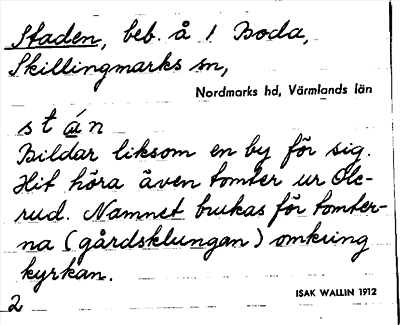 Staden, beb. å 1 Boda,
Skillingmarks sn,
Nordmarks hd, Värmlands län
stán
Bildar liksom en by för sig.
Hit höra även tomter ur Ole-
rud. Namnet brukas för tomter-
na (gårdsklungan) omkring
kyrkan.
ISAK WALLIN 1912
2